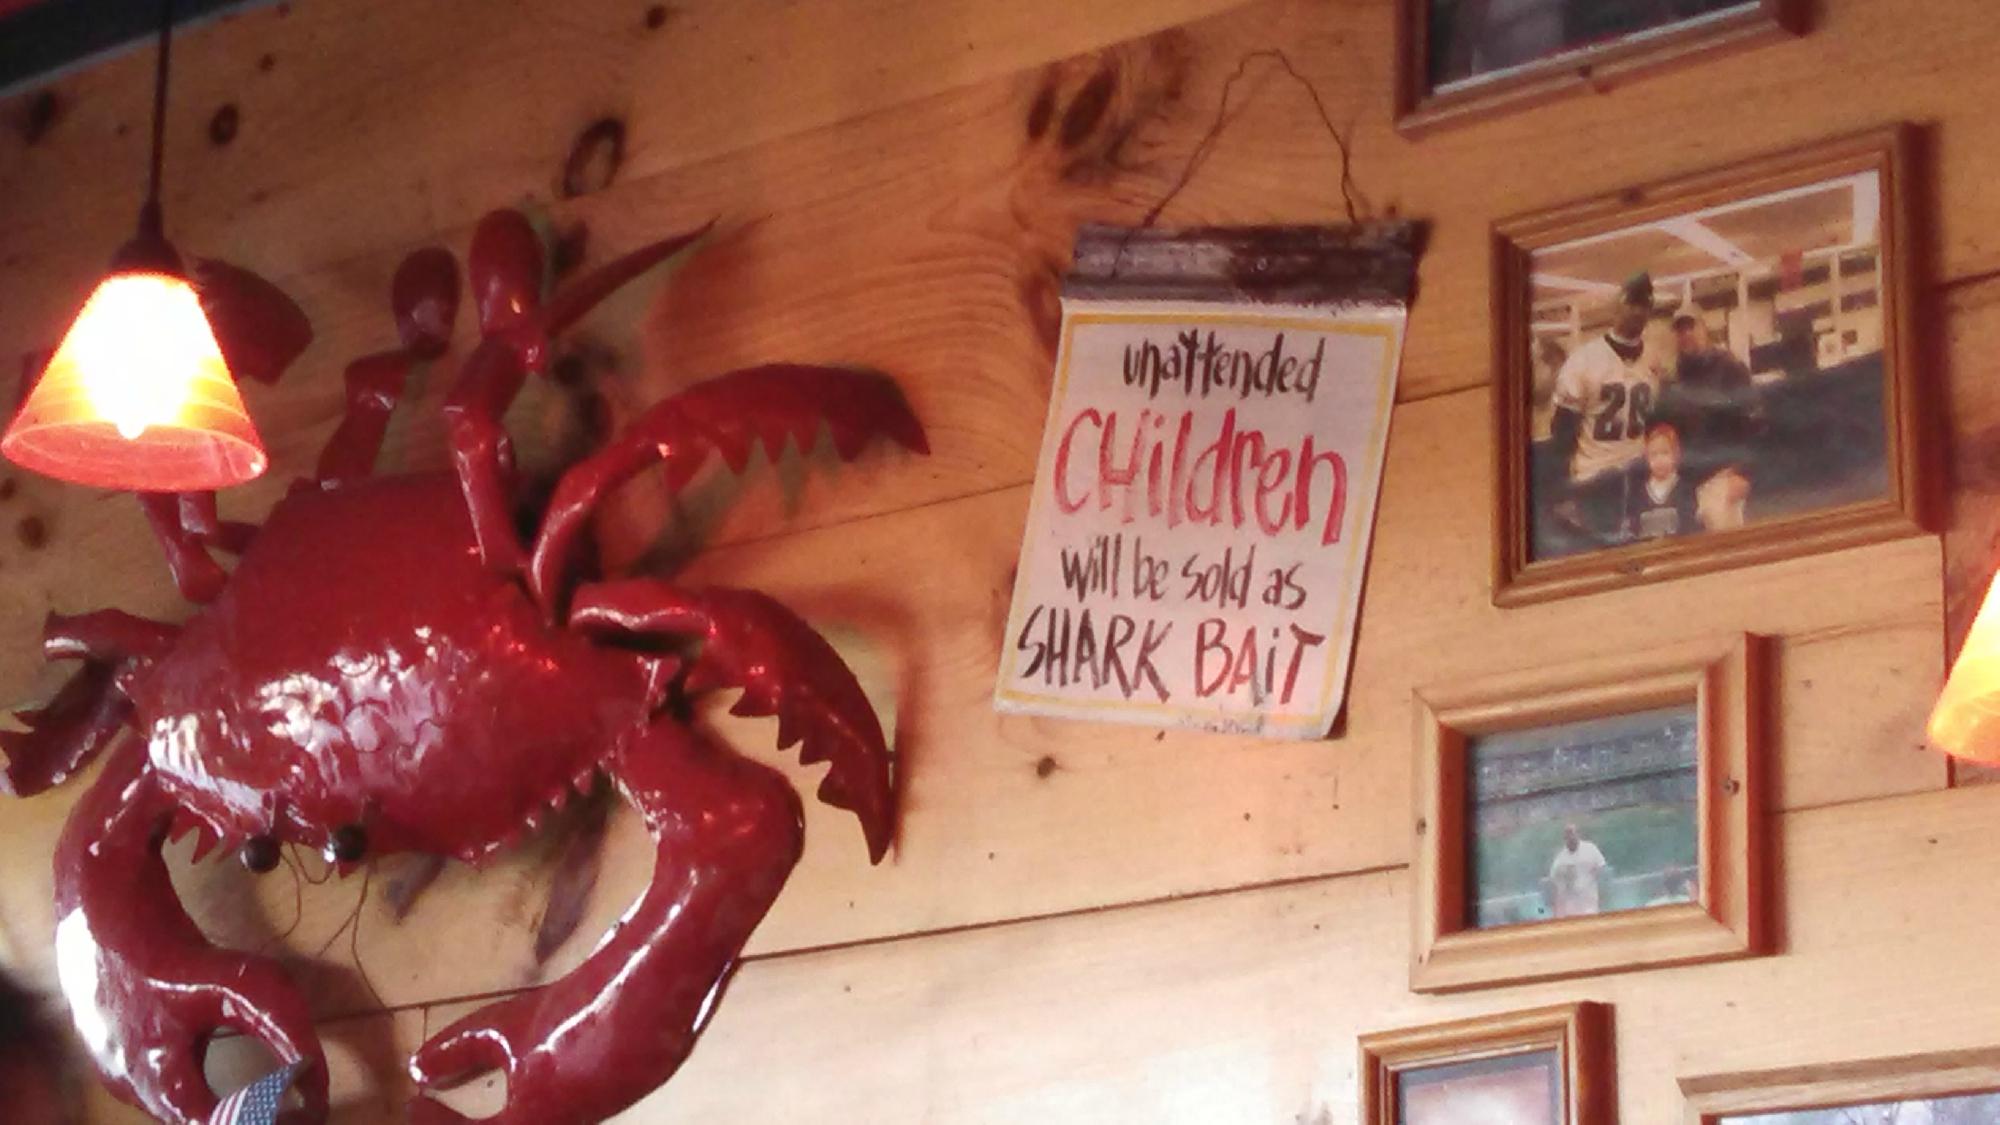 unattended
CHildren
will be sold as
SHARK BAiT
28